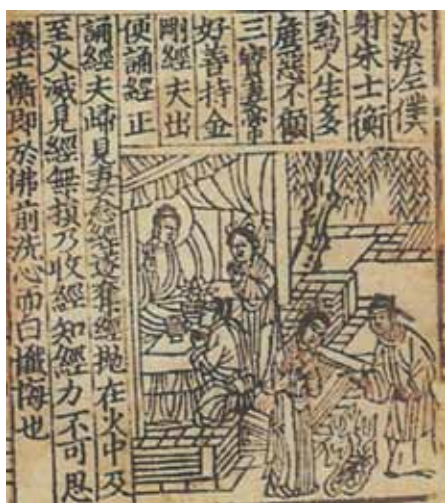 汴梁左僕
射朱士衡
爲人生多
麁惡不
三寶妻
好善持金
剛經夫出
便誦經正
誦經夫歸見妻念經遂奪經抛在火中及
至火滅見經無損乃收經知經力不可思
議士衡即於佛前洗心而白懺悔也